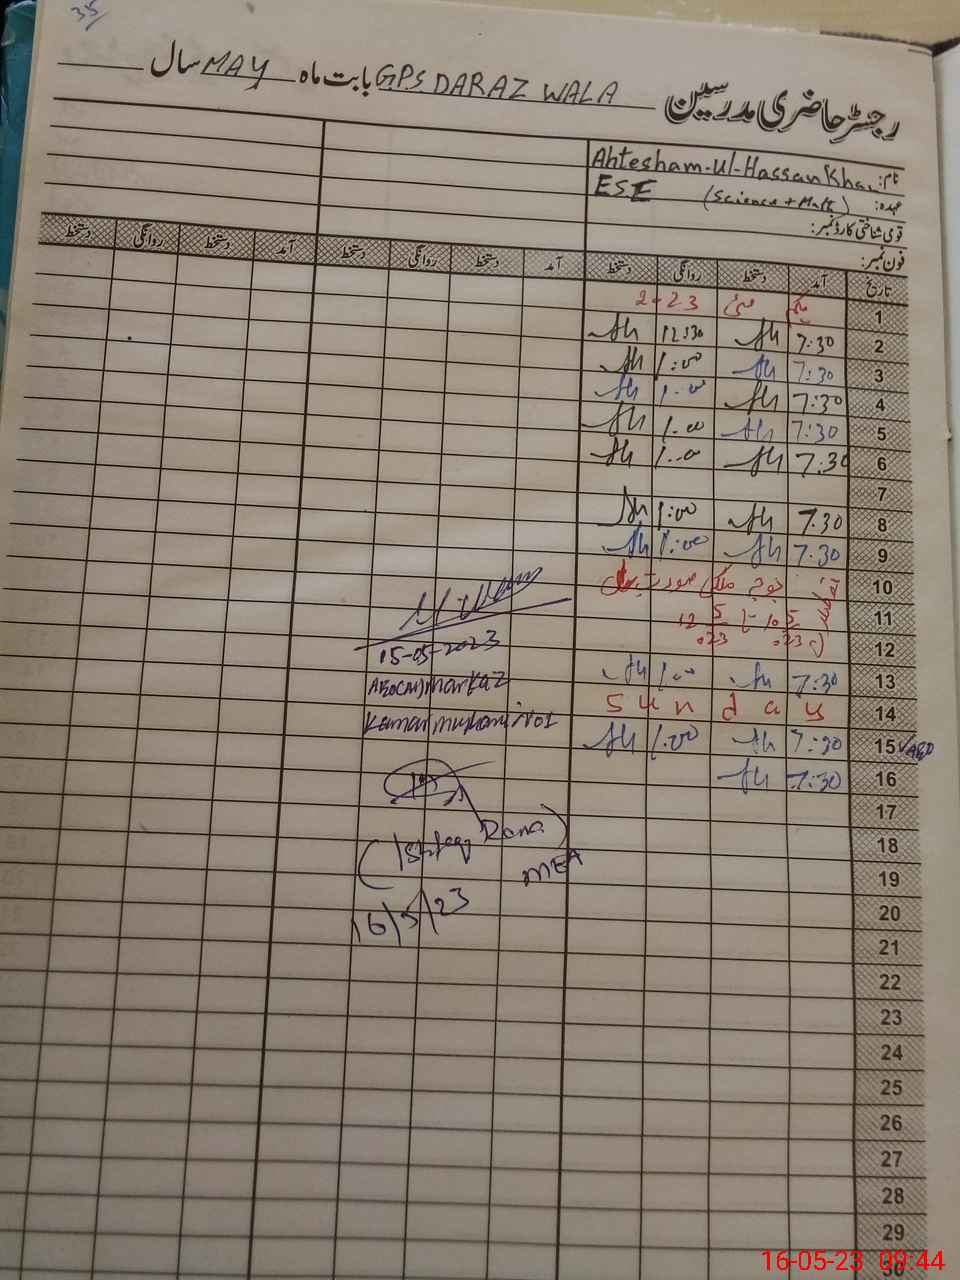 35
رجسٹر حاضری مدرسین GPS DARAZ WALA بابت ماہ MAY سال
نام: Ahtesham-ul-Hassan Khan
عہدہ: ESE (Science + Math)
قومی شناختی کارڈ نمبر:
فون نمبر:
تاریخ آمد دستخط روانگی دستخط آمد دستخط روانگی دستخط آمد دستخط روانگی دستخط
1 یکم مئی 2023
2 7:30 12:30
3 7:30 1:00
4 7:30 1:00
5 7:30 1:00
6 7:30 1:00
7
8 7:30 1:00
9 7:30 1:00
10
11 10 5/023 تا 12 5/023
12
15-05-2023
13 7:30 1:00
AEO(M) Markaz
14 Sunday
Kamar Mushani No1
15 7:30 1:00
16 7:30
17
18
(Ishfaq Rana)
19
MEA
20
16/5/23
21
22
23
24
25
26
27
28
29
30
16-05-23 09:44